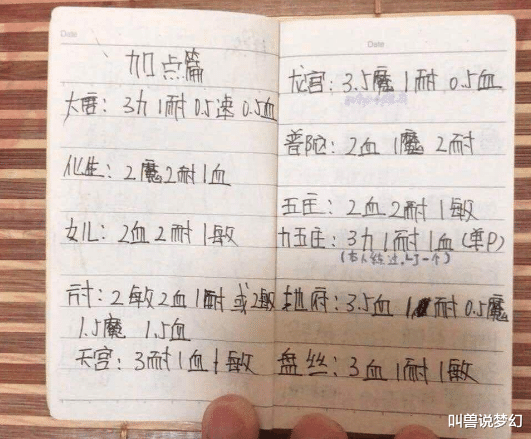 Date
加点篇
大唐：3力 1耐 0.5速 0.5血
化生：2魔2耐1血
女儿：2血2耐1敏
方寸：2敏2血1耐 或2敏
1.5魔 1.5血
天宫：3耐1血1敏
Date
龙宫：3.5魔 1耐 0.5血
普陀：2血 1魔 2耐
五庄：2血2耐1敏
力五庄：3力1耐1血(单P)
地府：3.5血 1耐 0.5魔
盘丝：3血1耐1敏
叫兽说梦幻